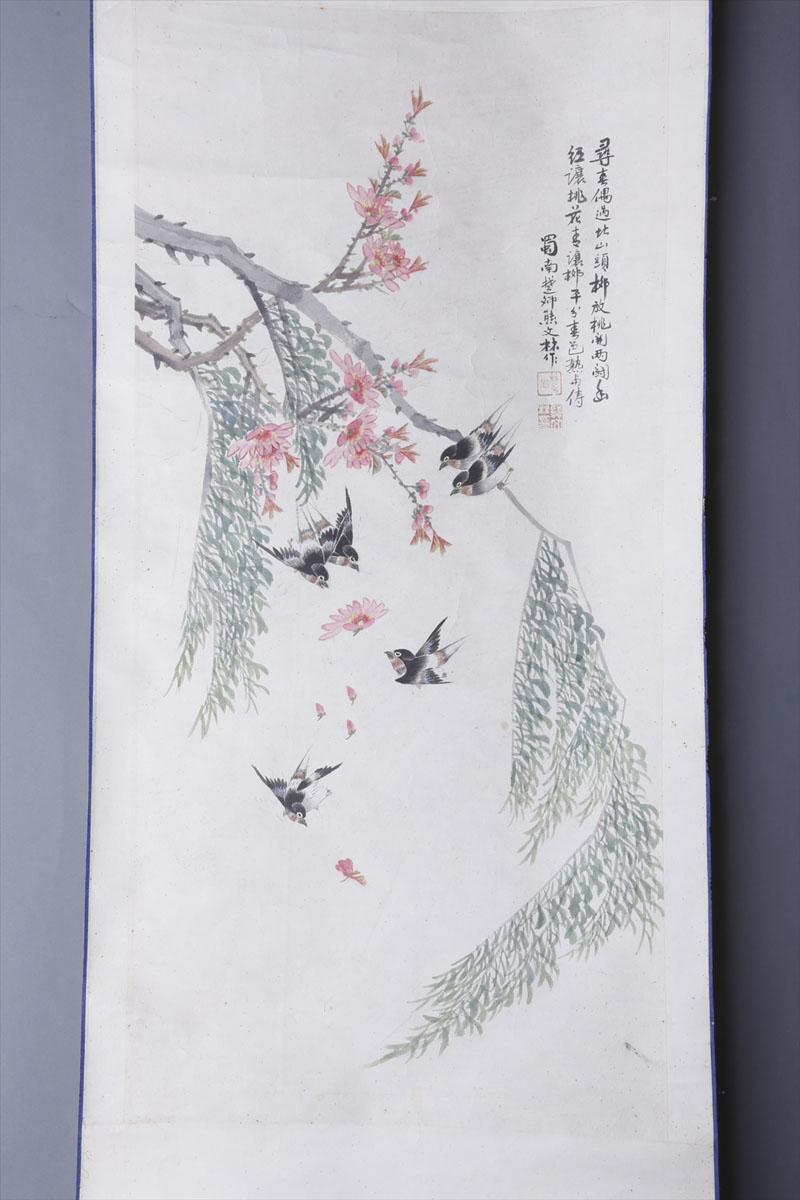 尋春偶過北山頭柳放桃開兩閧幽
紅讓桃花青讓柳平分春色熱與儔
蜀南楚卿熊文林作